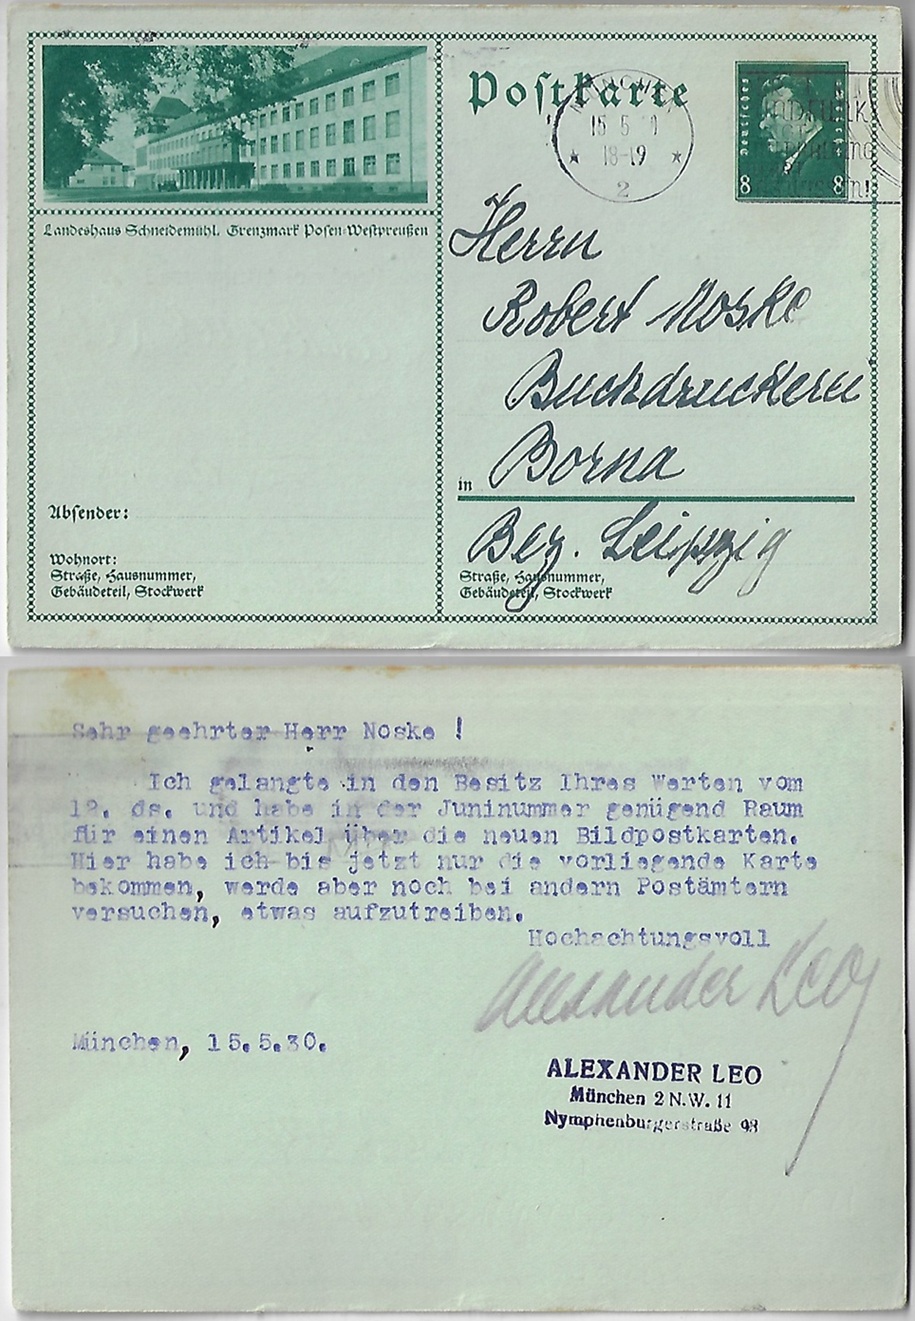 Landeshaus Schneidemühl. Grenzmark Posen-Westpreußen
Absender:
Wohnort:
Straße, Hausnummer,
Gebäudeteil, Stockwerk
Postkarte
MÜNCHEN
15 5 30
18-19
2
Deutsches Reich
8 8
Herrn
Robert Noske
Buchdruckerei
in Borna
Bez. Leipzig
Straße, Hausnummer,
Gebäudeteil, Stockwerk
Sehr geehrter Herr Noske !
Ich gelangte in den Besitz Ihres Werten vom
12. ds. und habe in der Juninummer genügend Raum
für einen Artikel über die neuen Bildpostkarten.
Hier habe ich bis jetzt nur die vorliegende Karte
bekommen, werde aber noch bei andern Postämtern
versuchen, etwas aufzutreiben.
Hochachtungsvoll
Alexander Leo
München, 15.5.30.
ALEXANDER LEO
München 2 N.W. 11
Nymphenburgerstraße 98